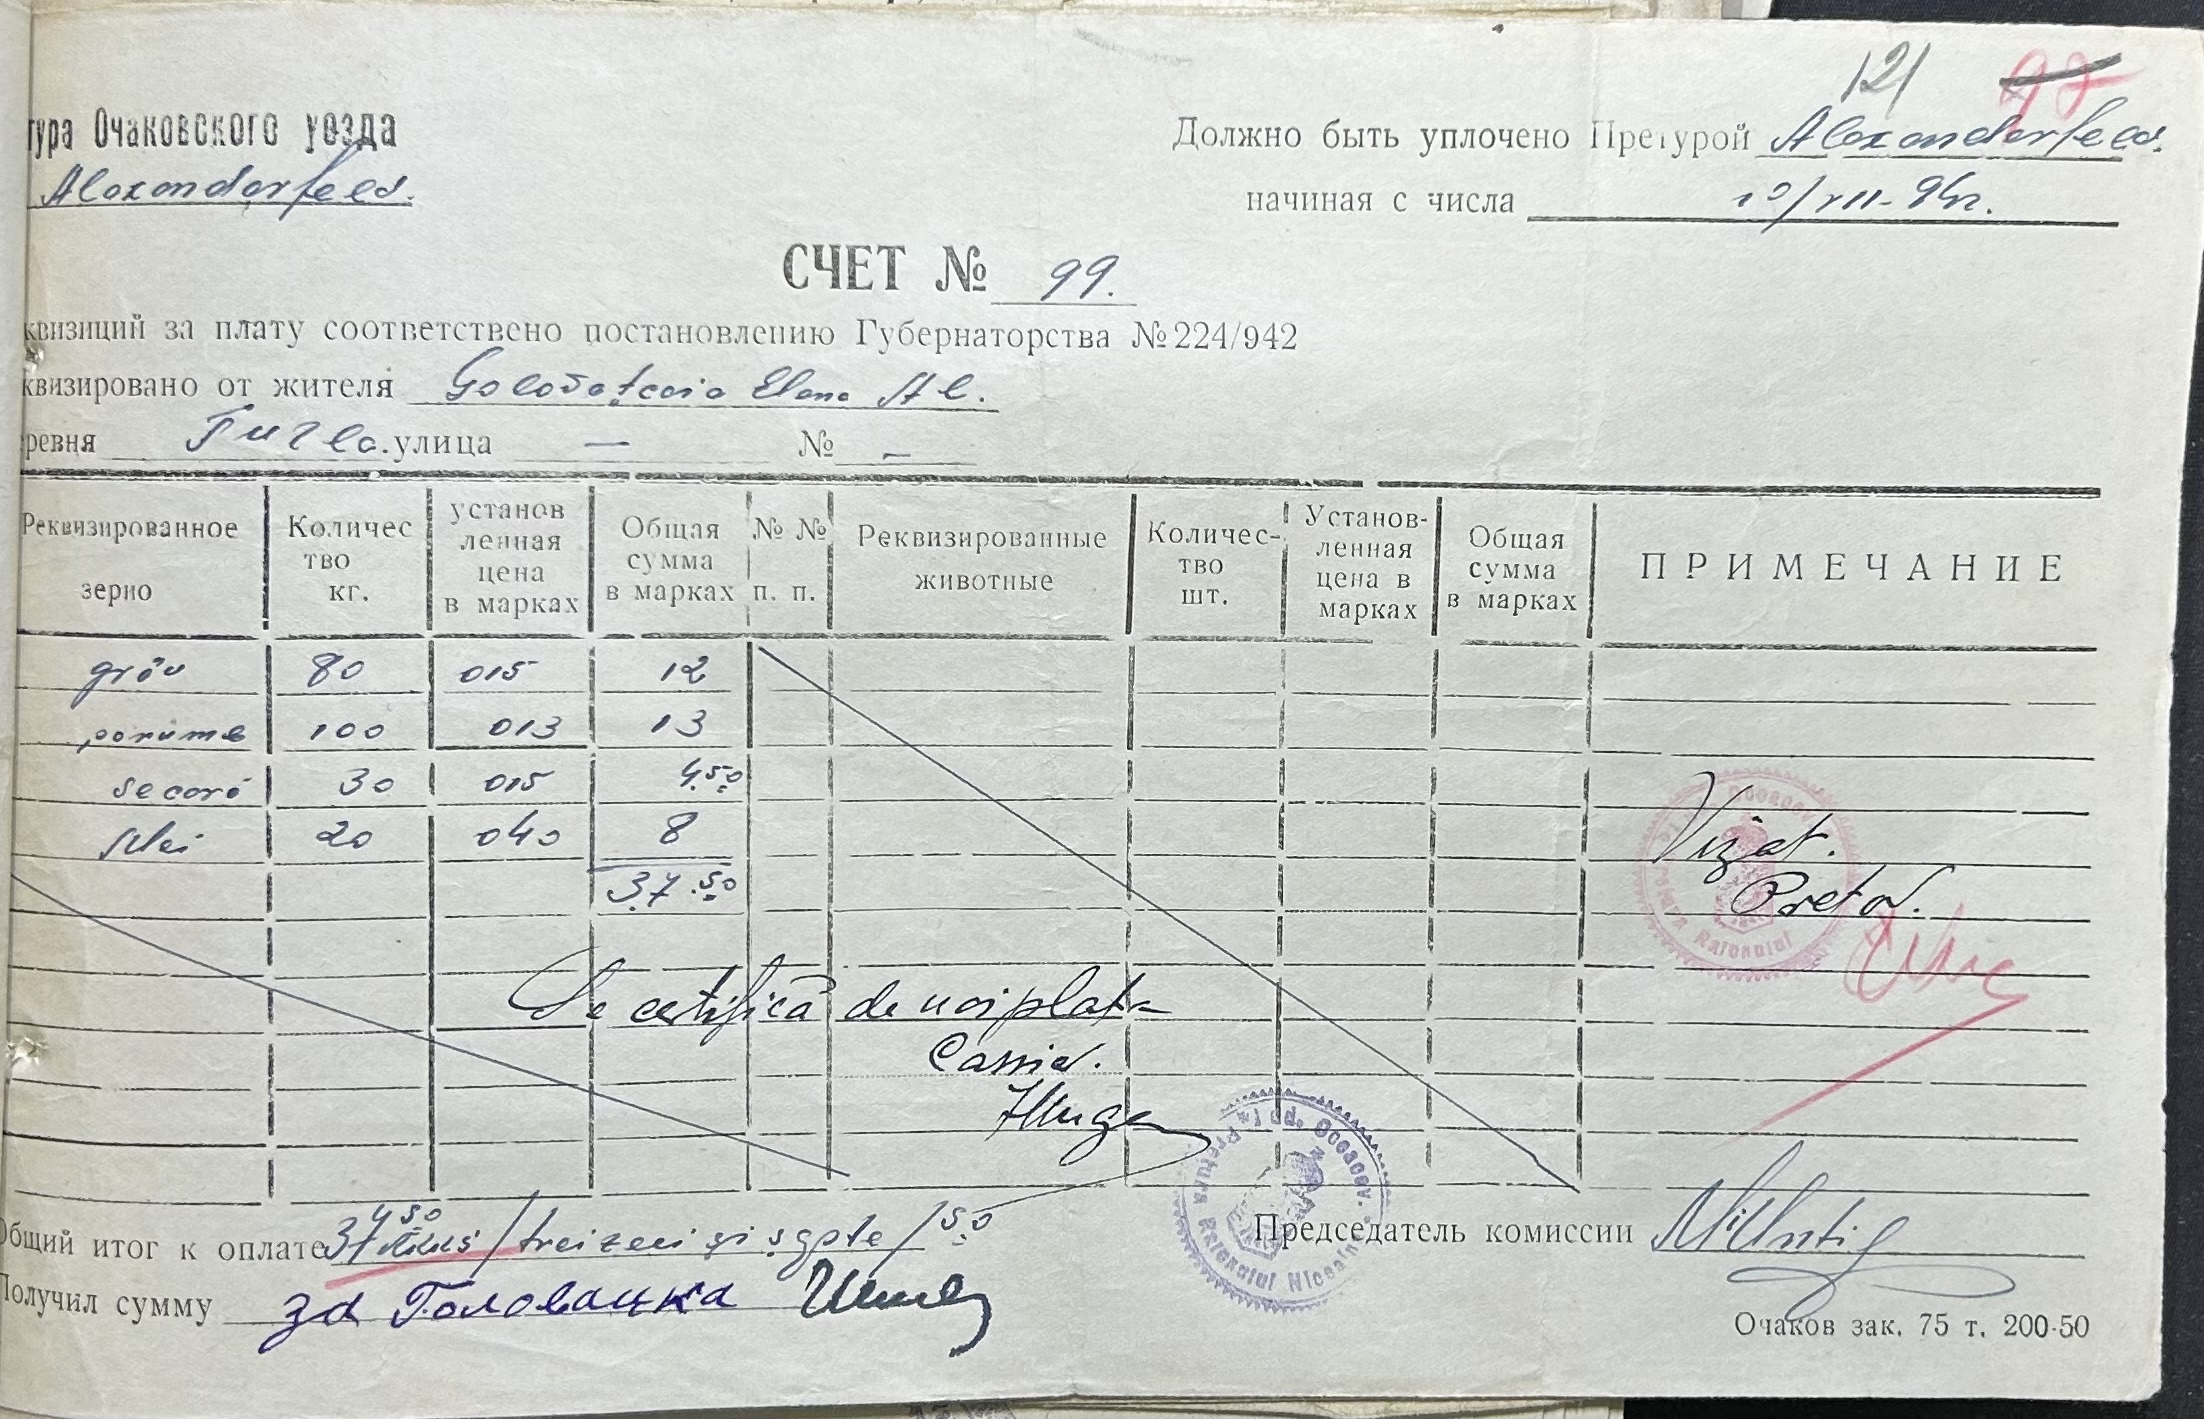 121 97
тура Очаковского уезда
Alexanderfeld.
Должно быть уплочено Претурой Alexanderfeld.
начиная с числа 10/VII-942.
СЧЕТ № 99.
квизиций за плату соответствено постановлению Губернаторства №224/942
квизировано от жителя Elena Al.
ревня улица — № –
Реквизированное зерно
Количес тво кг.
установ ленная цена в марках
Общая сумма в марках
№ № п. п.
Реквизированные животные
Количес- тво шт.
Установ- ленная цена в марках
Общая сумма в марках
ПРИМЕЧАНИЕ
grâu 80 015 12
porumb 100 013 13
secară 30 015 4.50
Mei 20 040 8
37.50
Vizat.
Pretor.
Se certifică de noi plata
Casier.
Общий итог к оплате 37 /treizeci şi şapte/ 50
Председатель комиссии
Получил сумму за Головацка
Очаков зак. 75 т. 200-50